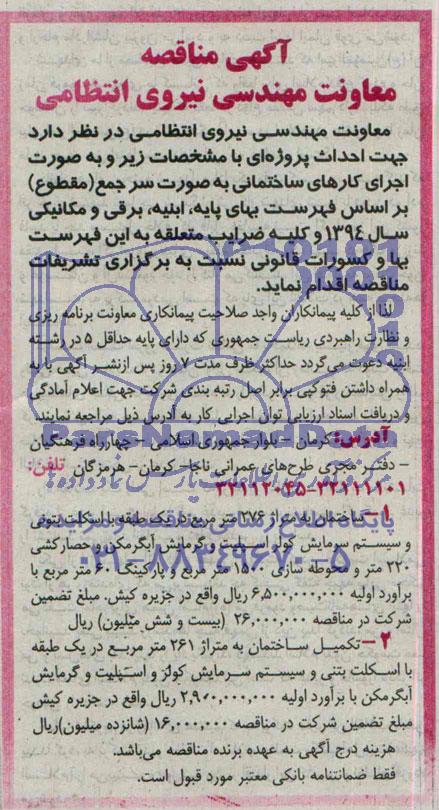 آگهی مناقصه
معاونت مهندسی نیروی انتظامی
معاونت مهندسی نیروی انتظامی در نظر دارد
جهت احداث پروژه‌ای با مشخصات زیر و به صورت
اجرای کارهای ساختمانی به صورت سر جمع (مقطوع)
بر اساس فهرست بهای پایه، ابنیه، برقی و مکانیکی
سال ۱۳۹۴ و کلیه ضرایب متعلقه به این فهرست
بها و کسورات قانونی نسبت به برگزاری تشریفات
مناقصه اقدام نماید.
لذا از کلیه پیمانکاران واجد صلاحیت پیمانکاری معاونت برنامه ریزی
و نظارت راهبردی ریاست جمهوری که دارای پایه حداقل ۵ در رشته
ابنیه دعوت می‌گردد حداکثر ظرف مدت ۷ روز پس از نشر آگهی با به
همراه داشتن فتوکپی برابر اصل رتبه بندی شرکت جهت اعلام آمادگی
و دریافت اسناد ارزیابی توان اجرایی کار به آدرس ذیل مراجعه نمایند.
آدرس: کرمان – بلوار جمهوری اسلامی – چهارراه فرهنگیان
– دفتر مجری طرح‌های عمرانی ناجا – کرمان – هرمزگان تلفن:
۱– ساختمان به متراژ ۲۷۶ متر مربع در یک طبقه با اسکلت بتونی
و سیستم سرمایش کولر اسپلیت و گرمایش آبگرمکن و حصارکشی
۲۲۰ متر و محوطه سازی ۱۵۰۰ متر مربع و پارکینگ ۶۰ متر مربع با
برآورد اولیه ۶,۵۰۰,۰۰۰,۰۰۰ ریال واقع در جزیره کیش. مبلغ تضمین
شرکت در مناقصه ۲۶,۰۰۰,۰۰۰ (بیست و شش میلیون) ریال
۲– تکمیل ساختمان به متراژ ۲۶۱ متر مربع در یک طبقه
با اسکلت بتنی و سیستم سرمایش کولر و اسپلیت و گرمایش
آبگرمکن با برآورد اولیه ۲,۹۰۰,۰۰۰,۰۰۰ ریال واقع در جزیره کیش
مبلغ تضمین شرکت در مناقصه ۱۶,۰۰۰,۰۰۰ (شانزده میلیون) ریال
هزینه درج آگهی به عهده برنده مناقصه می‌باشد.
فقط ضمانتنامه بانکی معتبر مورد قبول است.
پایگاه اطلاع رسانی
۰۲۱-۸۸۳۴۹۶۷۰-۵